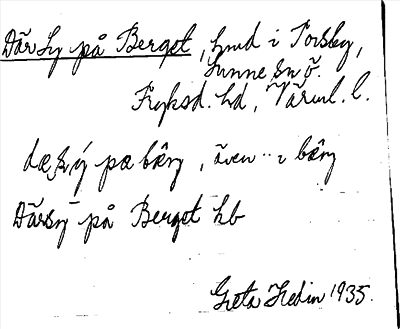 Där Sy på Berget, hmd i Torsby,
Sunne sn ö.
Fryksd. hd, Värml. l.
på bärj, även i bärj
Därsy på Berget hb
Greta Hedin 1935.